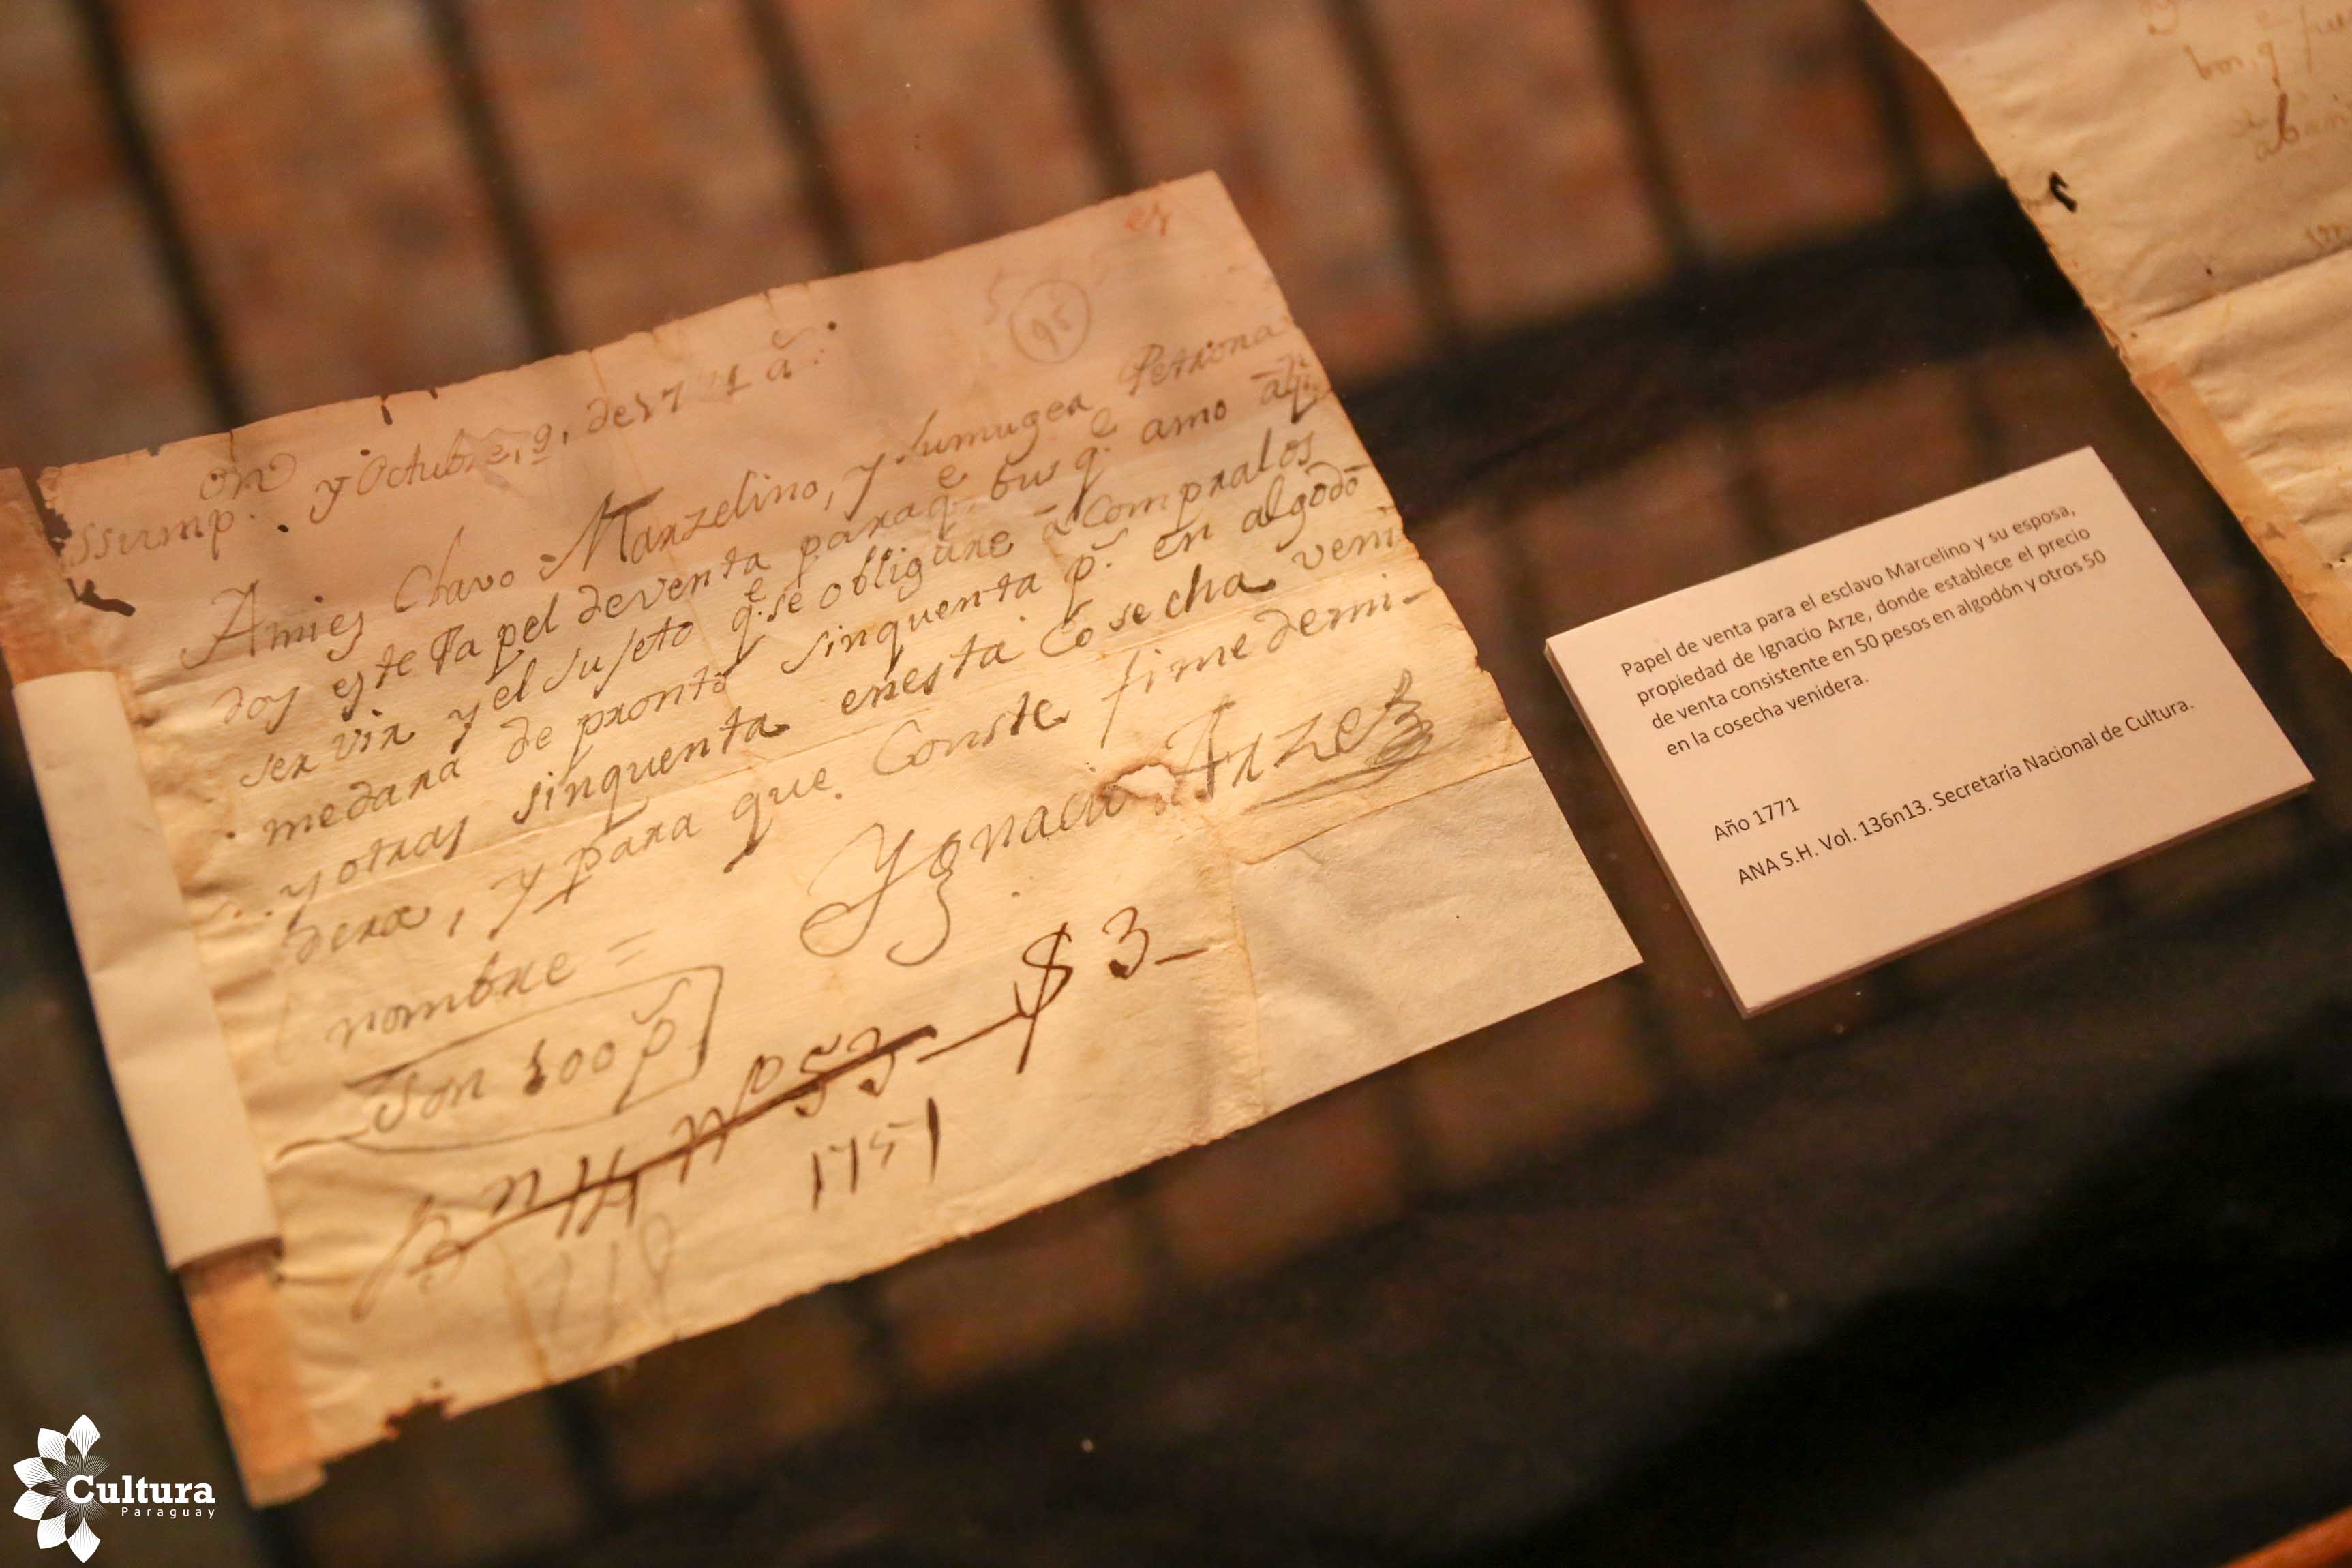 es
5
95
ssump.on y Octubre, 9, de 17 1 a.
Amies Clavo Marzelino, y sumuger Petrona
doy este Papel deventa paraq.e busq.e amo aqn.
servir y el sujeto q.e se obligare a compralos
medara de pronto sinquenta p.s en algodo
y otras sinquenta enesta Cosecha veni
dera, y para que Conste fimedemi-
nombre =
Ygnacio Arze
Son 100 p.s
$ 3-
1751
Papel de venta para el esclavo Marcelino y su esposa,
propiedad de Ignacio Arze, donde establece el precio
de venta consistente en 50 pesos en algodón y otros 50
en la cosecha venidera.
Año 1771
ANA S.H. Vol. 136n13. Secretaría Nacional de Cultura.
Cultura
Paraguay